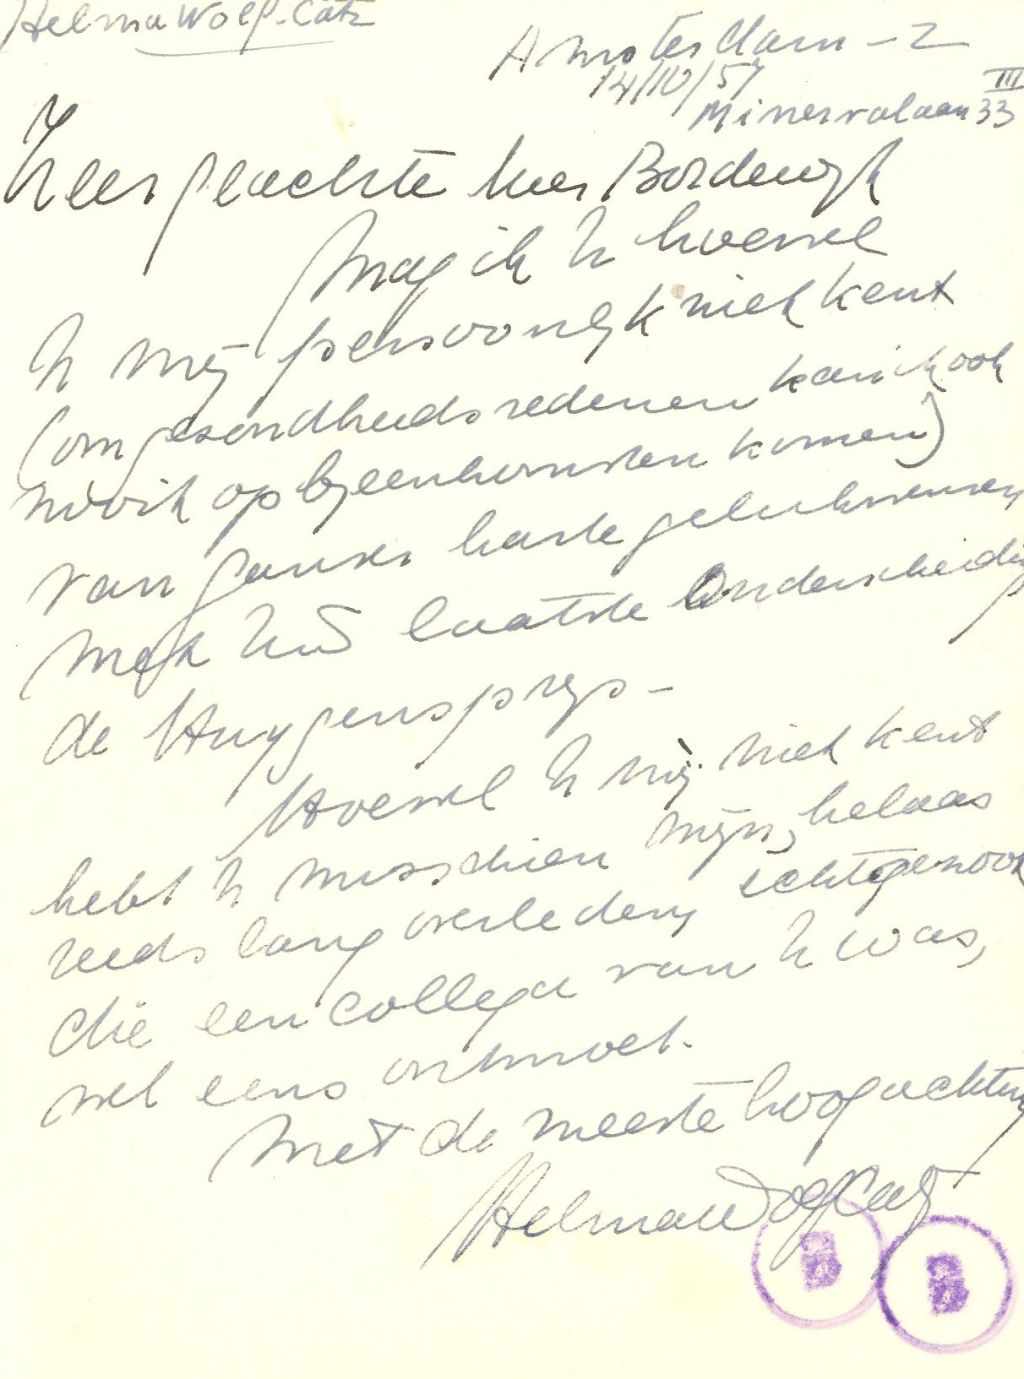 Helma Wolf-Catz
Amsterdam-Z
14/10/57
Minervalaan 33 III
Zeer geachte heer Bordewijk
Mag ik U hoewel
U mij persoonlijk niet kent
(om gezondheidsredenen kan ik ook
nooit op bijeenkomsten komen)
van ganser harte gelukwensen
met Uw laatste Onderscheiding
de Huygensprijs -
Hoewel U mij niet kent
hebt U misschien mijn, helaas
reeds lang overleden, echtgenoot
die een collega van U was,
wel eens ontmoet.
Met de meeste hoogachting
Helma Wolf Catz
B B